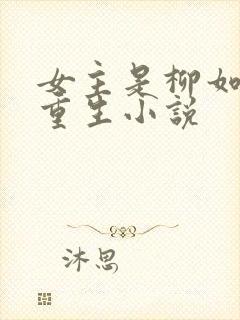 女主是柳如
重生小说
沐思